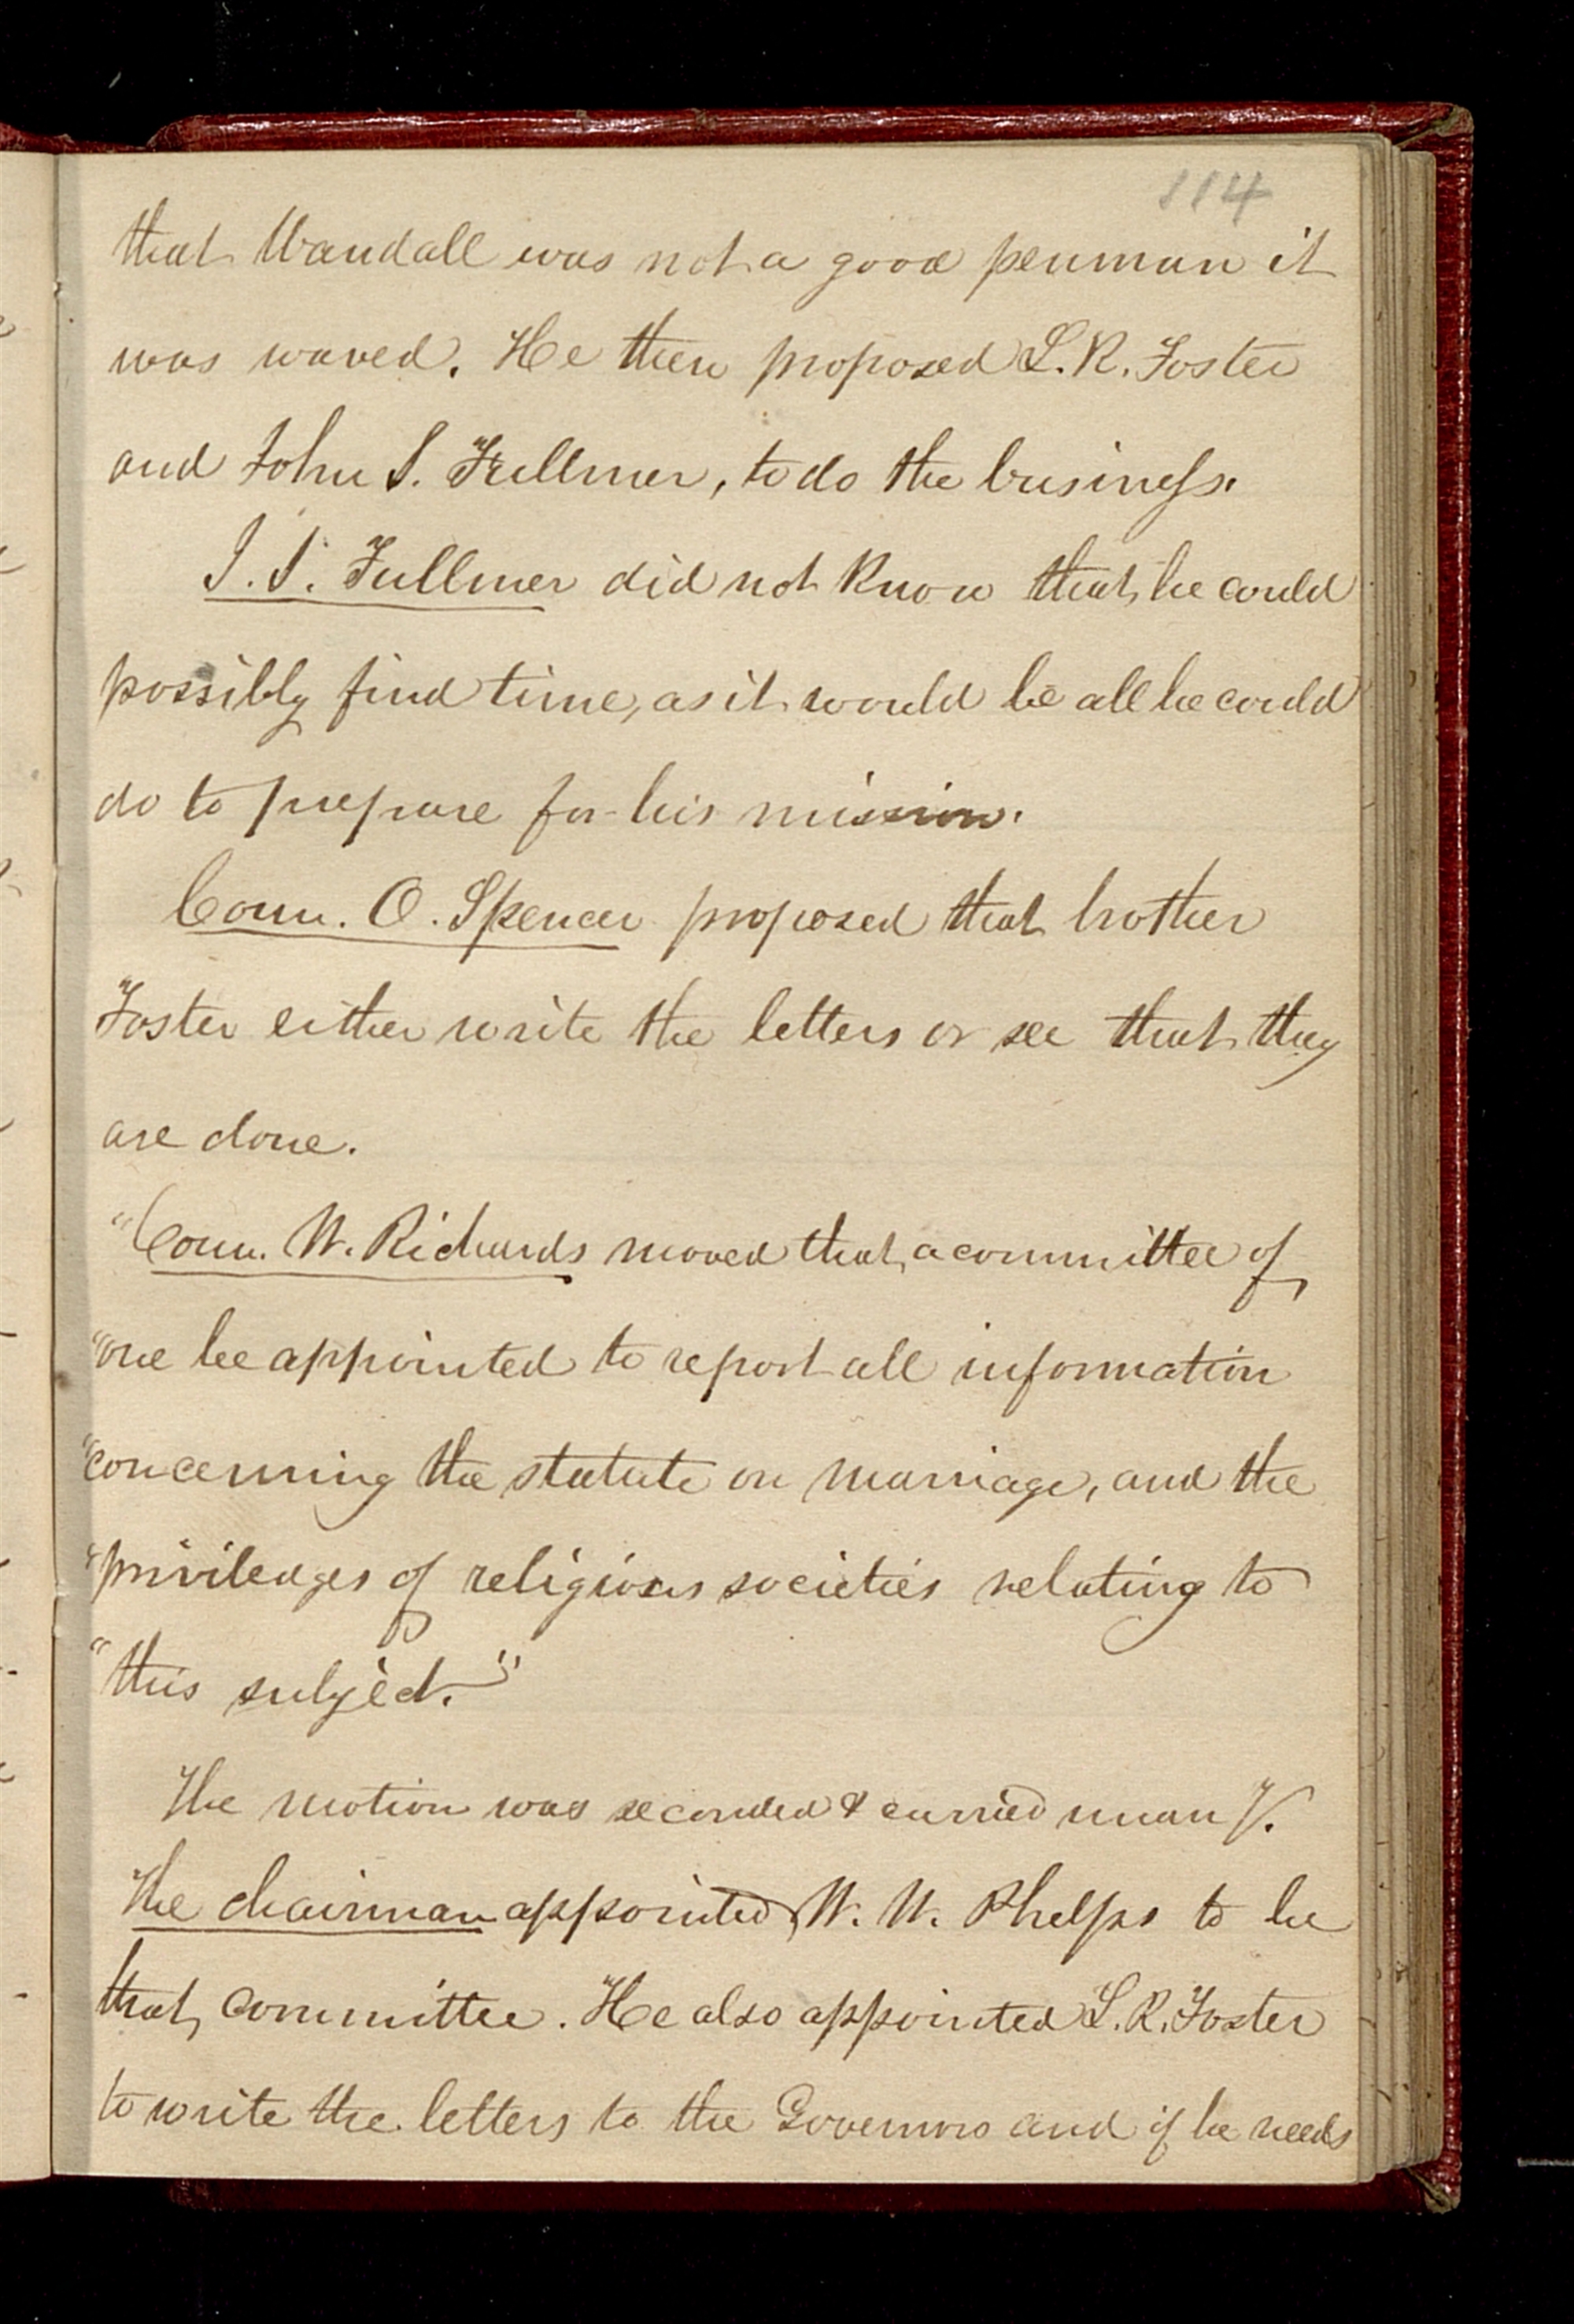 114
that Wandall was not a good penman it
was waved. He then proposed L. R. Foster
and John S. Fullmer, to do the business.
J. S. Fullmer did not know that he could
possibly find time, as it would be all he could
do to prepare for his mission.
Coun. O. Spencer proposed that brother
Foster either write the letters or see that they
are done.
"Coun. W. Richards moved that a committee of
"one be appointed to report all information
"concerning the statute on marriage, and the
"priviledges of religious societies relating to
"this subject."
The motion was seconded & carried unan V.
The chairman appointed W. W. Phelps to be
that committee. He also appointed L. R. Foster
to write the letters to the Governors and if he needs